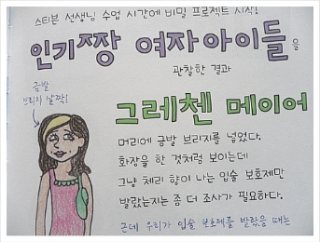 스티븐 선생님 수업 시간에 비밀 프로젝트 시작!
인기짱 여자아이들을
관찰한 결과
금발
브리지 살짝!
그레첸 메이어
머리에 금발 브리지를 넣었다.
화장을 한 것처럼 보이는데
그냥 체리 향이 나는 입술 보호제만
발랐는지는 좀 더 조사가 필요하다.
근데 우리가 입술 보호제를 발랐을 때는